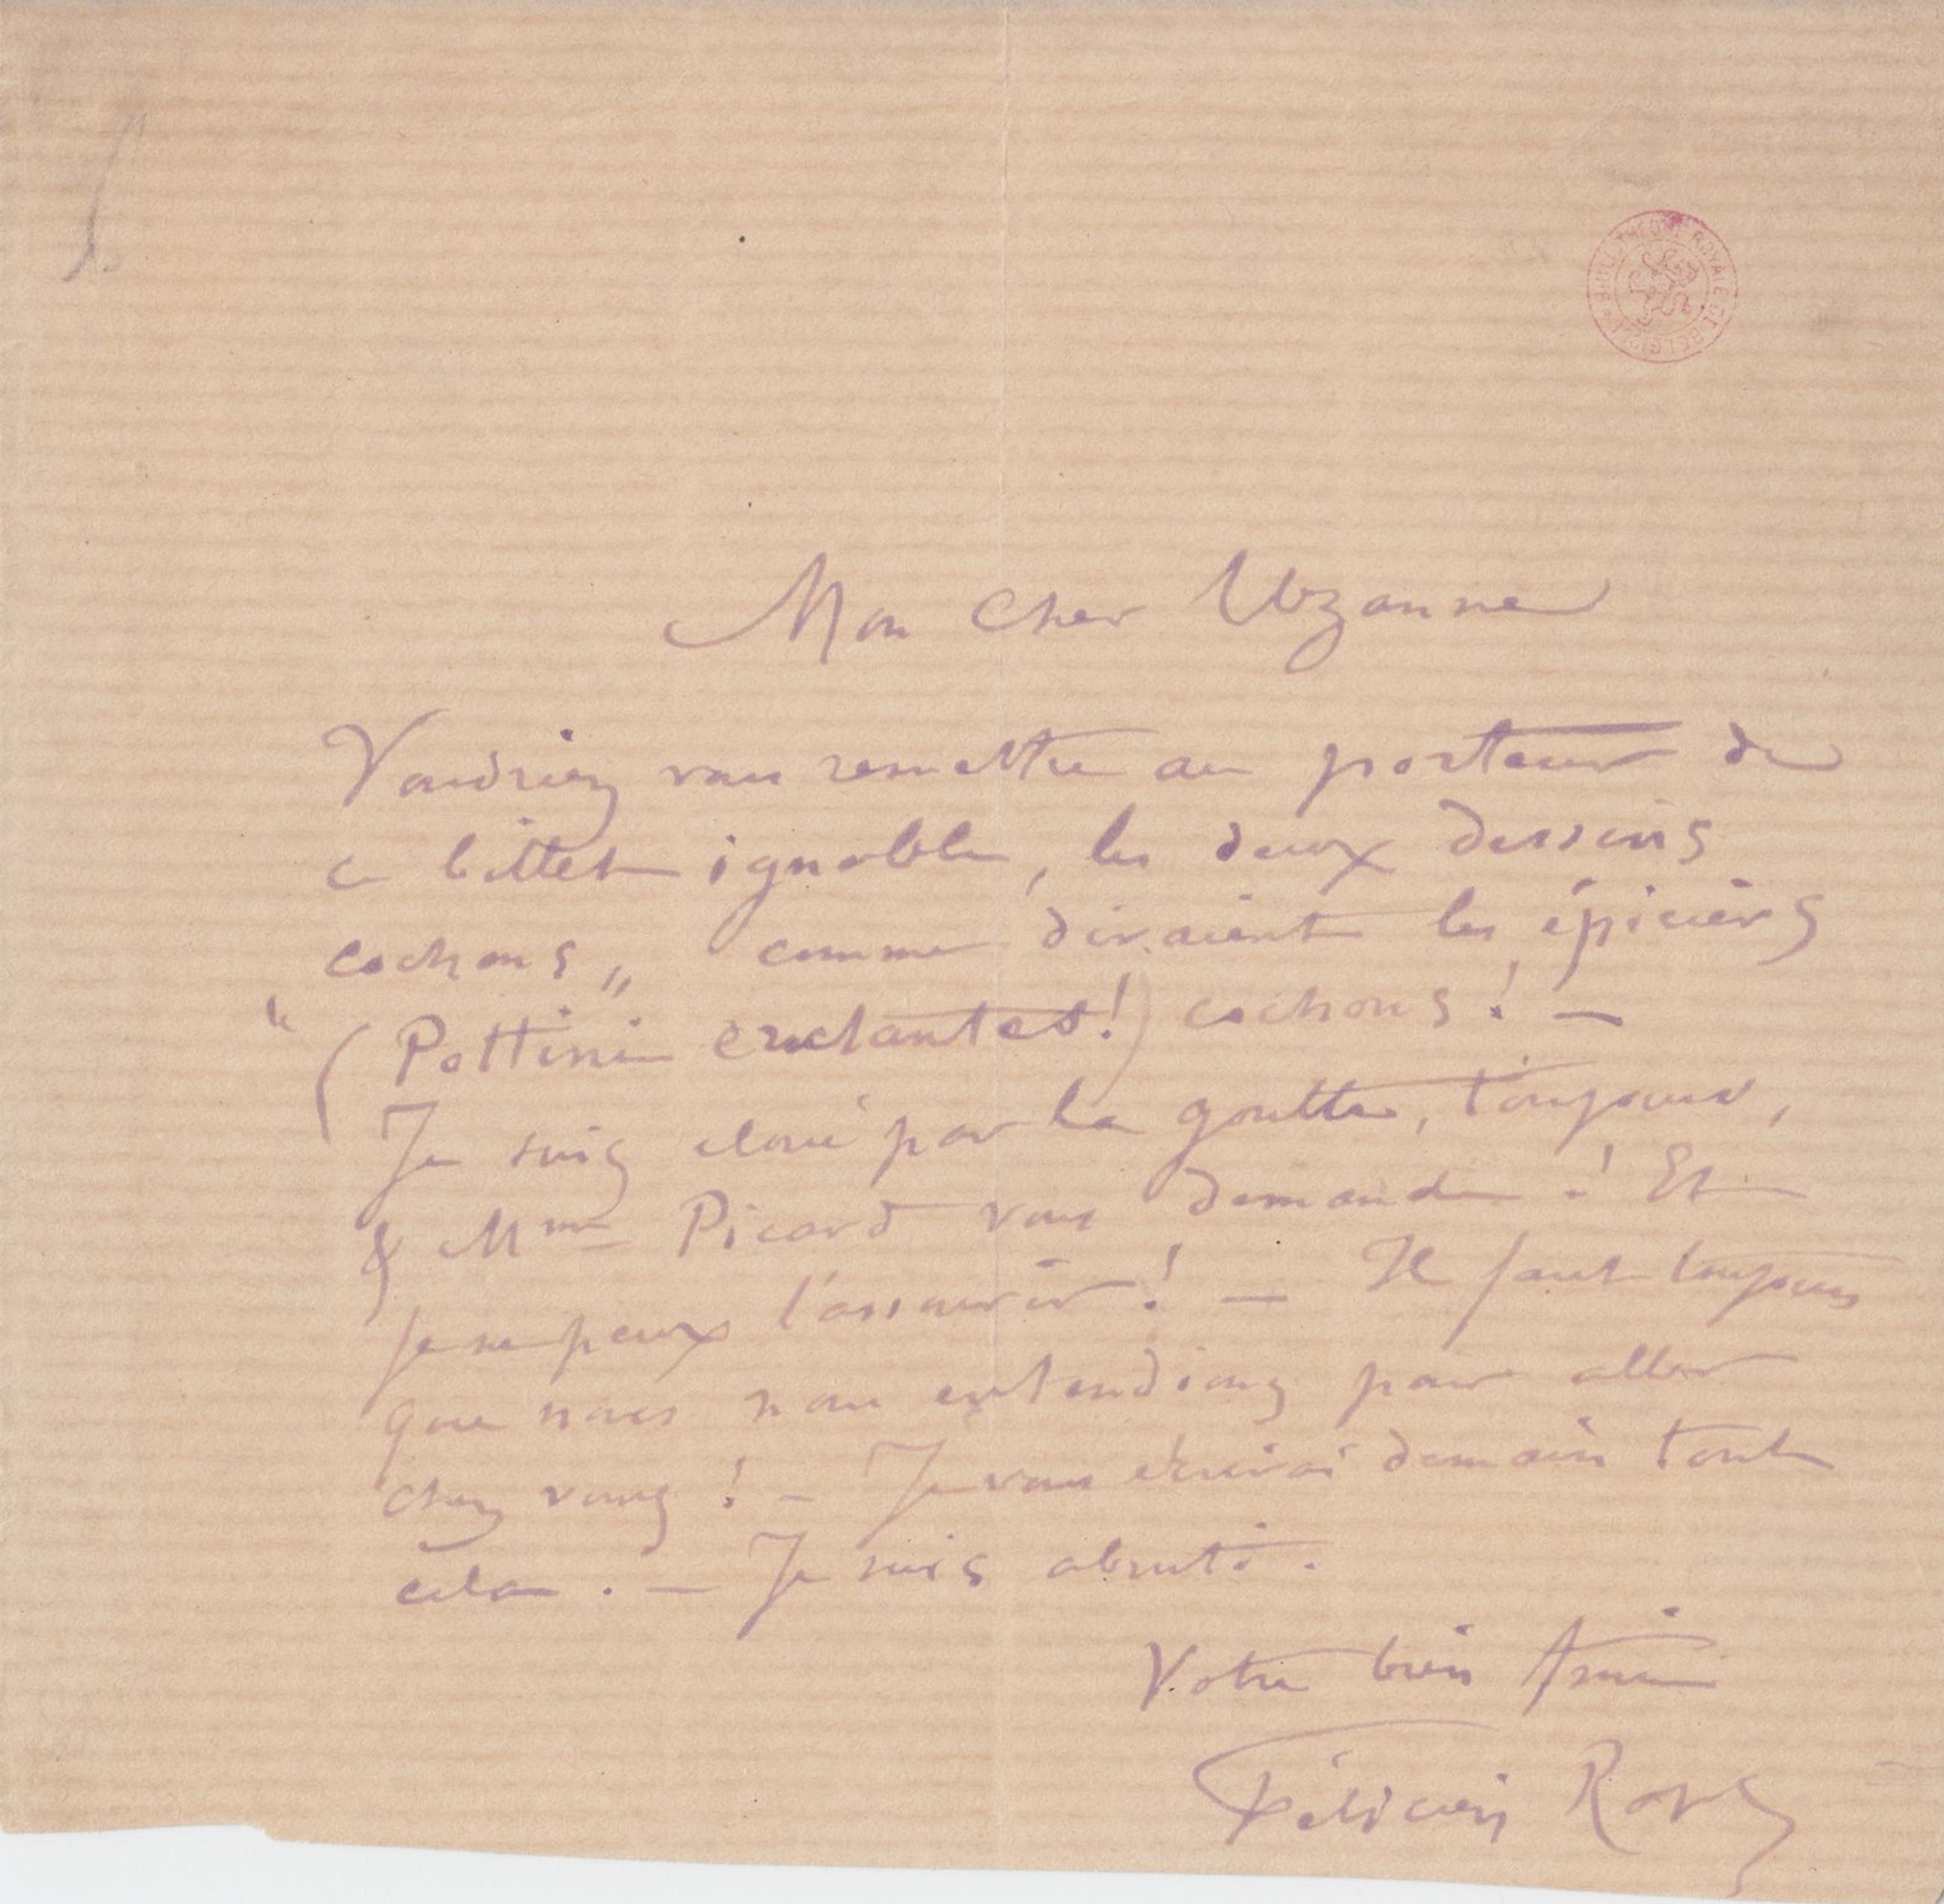 BIBLIOTHÈQUE ROYALE DE BELGIQUE
Mon cher Uzanne
Voudriez vous remettre au porteur de
ce billet ignoble, les deux dessins
cochons „ comme diraient les épiciers
“ (Pottins cochons! —
Je suis cloué par la goutte, toujours,
& Mme Picard vous demande! Et
je ne peux l'assouvir! — Il faut toujours
que nous nous entendions pour aller
chez vous! — Je vous écrirai demain tout
cela. — Je suis abruti.
Votre bien Ami
Félicien Rops